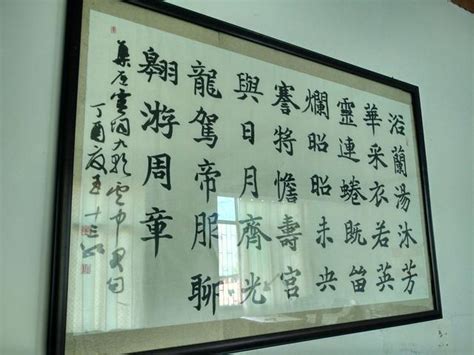 浴蘭湯沐芳
華采衣若英
靈連蜷既留
爛昭昭未央
謇將憺壽宮
與日月齊光
龍駕帝服聊
翱游周章
集屈靈均九歌云中君句
丁酉夏五